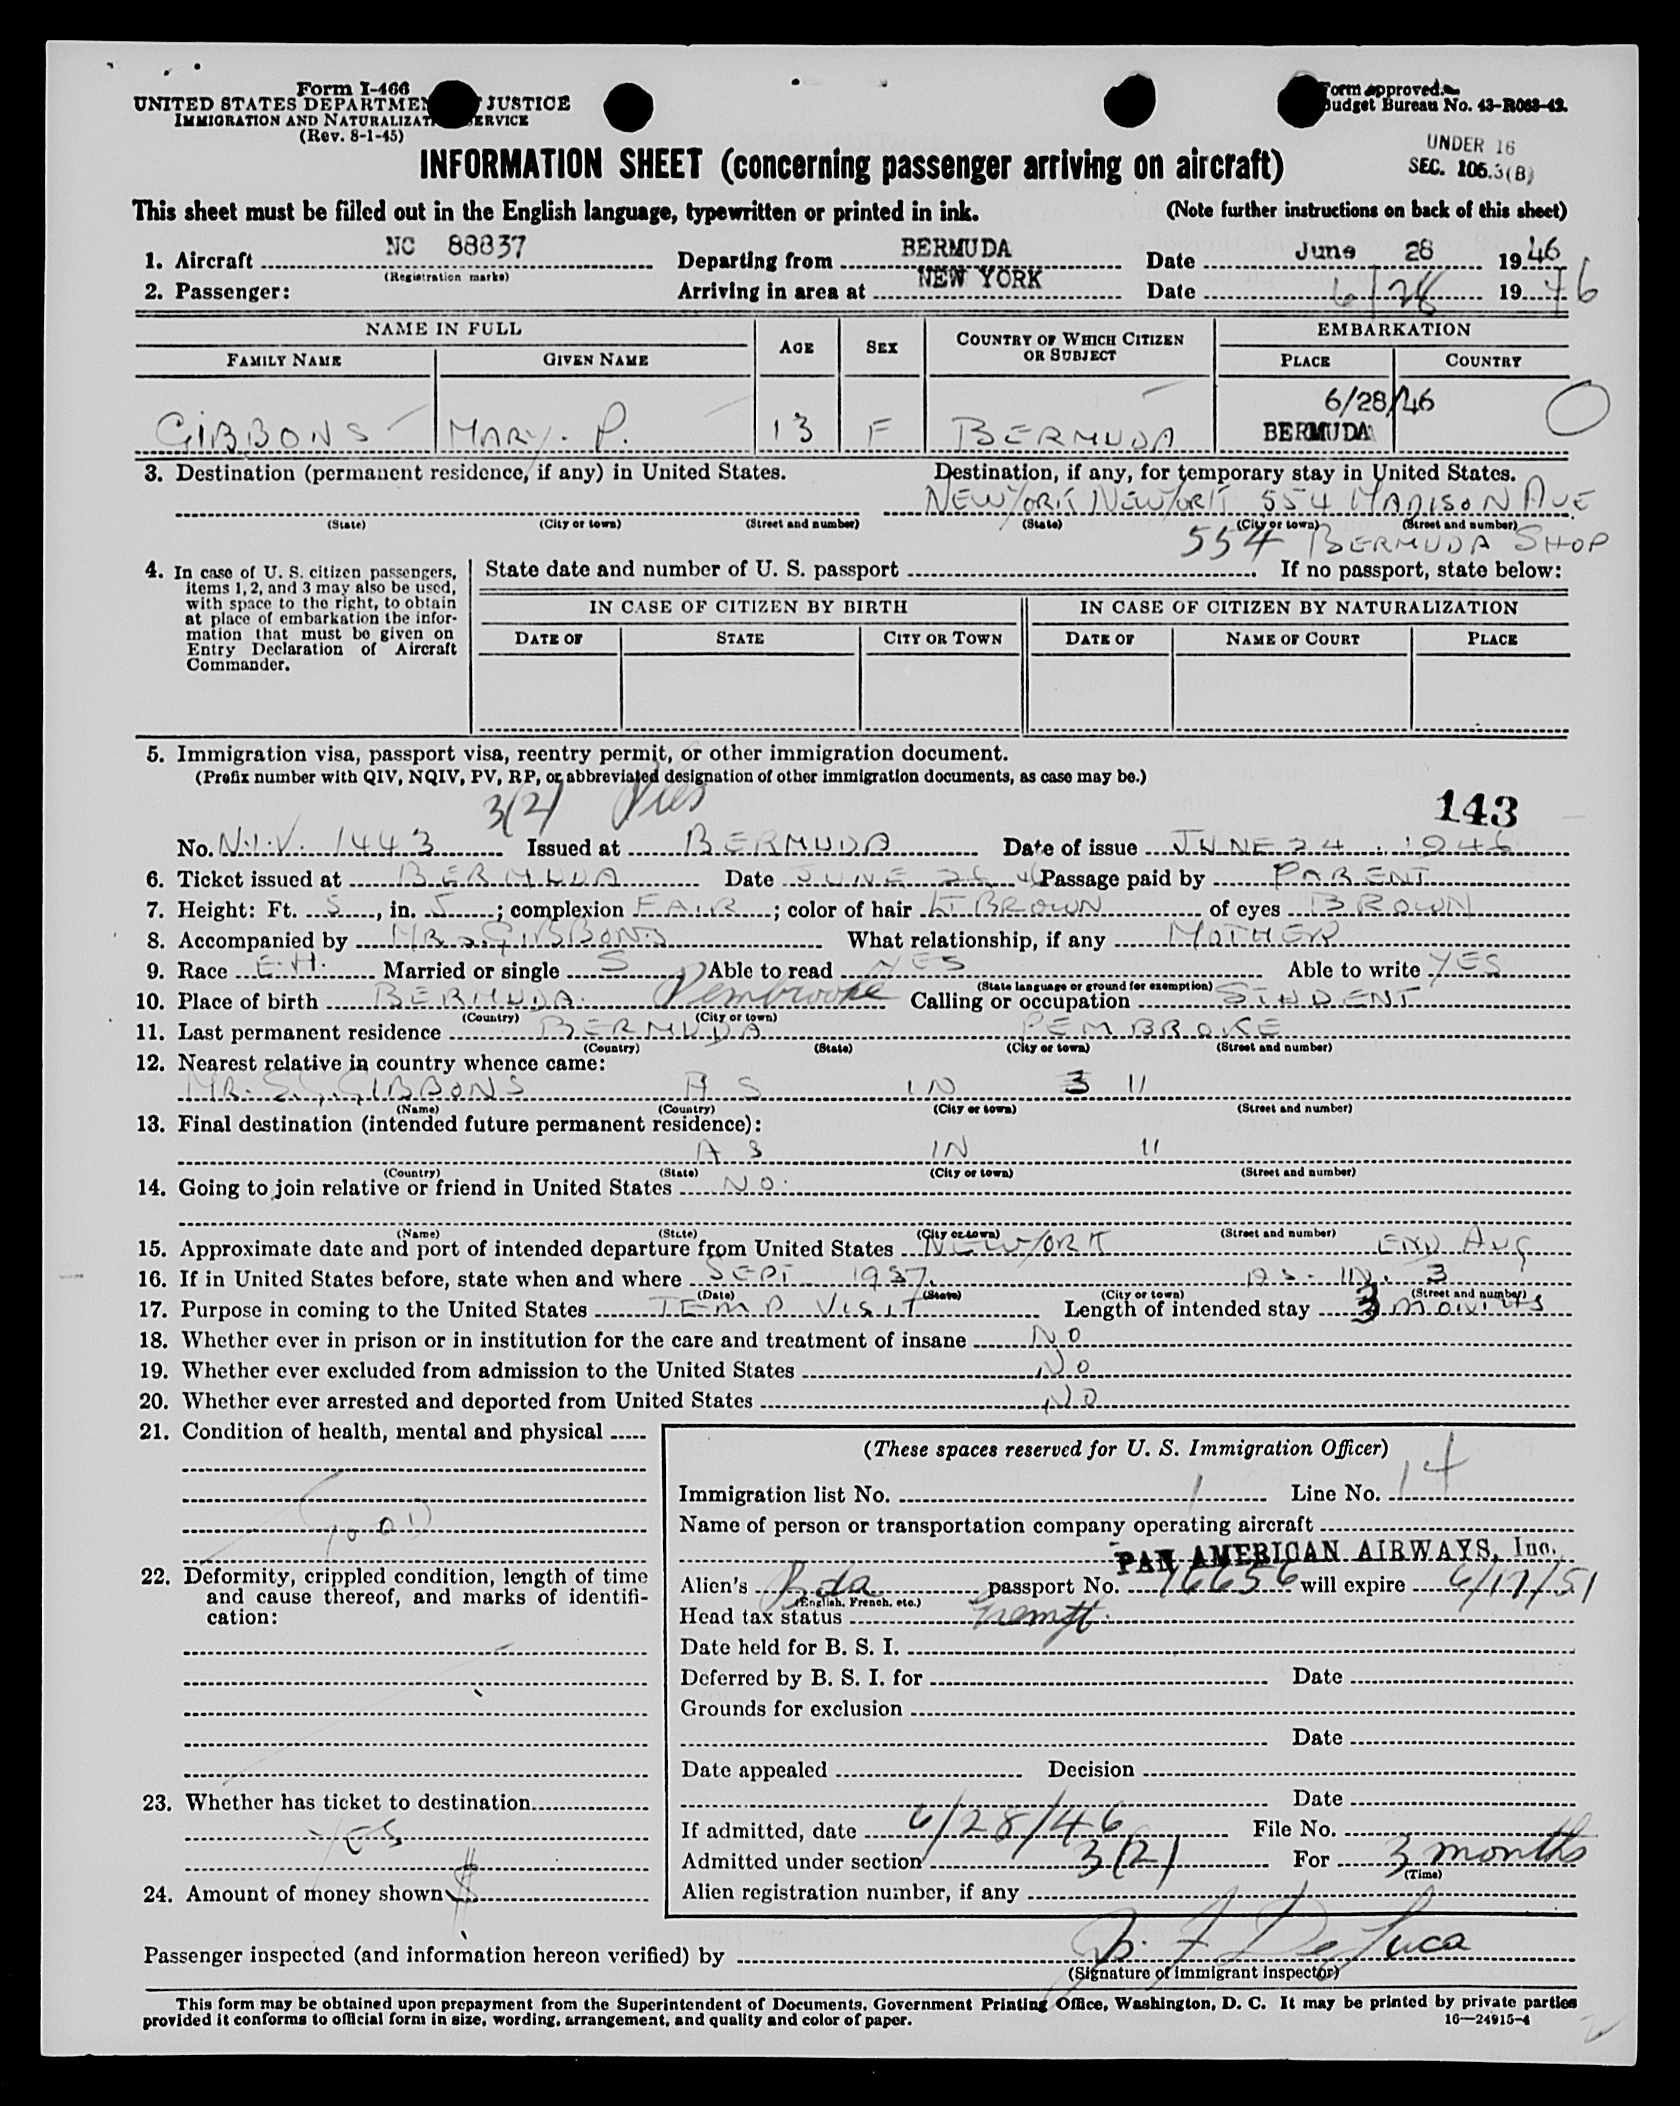 Form I-466
UNITED STATES DEPARTMENT JUSTICE
IMMIGRATION AND NATURALIZAT SERVICE
(Rev. 8-1-45)
Form approved.
Budget Bureau No. 43-R063-42.
UNDER 16
SEC. 105.3(B)
INFORMATION SHEET (concerning passenger arriving on aircraft)
This sheet must be filled out in the English language, typewritten or printed in ink. (Note further instructions on back of this sheet)
1. Aircraft NC 88837 Departing from BERMUDA Date June 28 1946
(Registration marks)
2. Passenger: Arriving in area at NEW YORK Date 6/28 1946
NAME IN FULL AGE SEX COUNTRY OF WHICH CITIZEN OR SUBJECT EMBARKATION
FAMILY NAME GIVEN NAME PLACE COUNTRY
6/28/46
GIBBONS MARY. P. 13 F BERMUDA BERMUDA
3. Destination (permanent residence, if any) in United States. Destination, if any, for temporary stay in United States.
NEW YORK NEW YORK 554 MADISON AVE
(State) (City or town) (Street and number) (State) (City or town) (Street and number)
554 BERMUDA SHOP
4. In case of U. S. citizen passengers, items 1, 2, and 3 may also be used, with space to the right, to obtain at place of embarkation the information that must be given on Entry Declaration of Aircraft Commander.
State date and number of U. S. passport If no passport, state below:
IN CASE OF CITIZEN BY BIRTH IN CASE OF CITIZEN BY NATURALIZATION
DATE OF STATE CITY OR TOWN DATE OF NAME OF COURT PLACE
5. Immigration visa, passport visa, reentry permit, or other immigration document.
(Prefix number with QIV, NQIV, PV, RP, or abbreviated designation of other immigration documents, as case may be.)
3(2)
143
No. N.I.V. 1443 Issued at BERMUDA Date of issue JUNE 24 1946
6. Ticket issued at BERMUDA Date JUNE 26 46 Passage paid by PARENT
7. Height: Ft. 5, in. 5; complexion FAIR; color of hair LT BROWN of eyes BROWN
8. Accompanied by MRS GIBBONS What relationship, if any MOTHER
9. Race E.H. Married or single S Able to read YES Able to write YES
(State language or ground for exemption)
10. Place of birth BERMUDA. Pembroke Calling or occupation STUDENT
(Country) (City or town)
11. Last permanent residence BERMUDA PEMBROKE
(Country) (State) (City or town) (Street and number)
12. Nearest relative in country whence came:
MR. S. GIBBONS AS IN 3 11
(Name) (Country) (City or town) (Street and number)
13. Final destination (intended future permanent residence):
AS IN 11
(Country) (State) (City or town) (Street and number)
14. Going to join relative or friend in United States NO.
(Name) (State) (City or town) (Street and number)
15. Approximate date and port of intended departure from United States NEW YORK END AUG
16. If in United States before, state when and where SEPT 1937. AS. IN. 3
(Date) (State) (City or town) (Street and number)
17. Purpose in coming to the United States TEMP VISIT Length of intended stay 3 MONTHS
18. Whether ever in prison or in institution for the care and treatment of insane NO
19. Whether ever excluded from admission to the United States NO
20. Whether ever arrested and deported from United States NO
21. Condition of health, mental and physical
GOOD
22. Deformity, crippled condition, length of time and cause thereof, and marks of identification:
23. Whether has ticket to destination
YES
24. Amount of money shown $
(These spaces reserved for U. S. Immigration Officer)
Immigration list No. 1 Line No. 14
Name of person or transportation company operating aircraft
PAN AMERICAN AIRWAYS, Inc.
Alien's Bda passport No. 16656 will expire 6/17/51
(English, French, etc.)
Head tax status Exempt
Date held for B. S. I.
Deferred by B. S. I. for Date
Grounds for exclusion
Date
Date appealed Decision
Date
If admitted, date 6/28/46 File No.
Admitted under section 3(2) For 3 months
(Time)
Alien registration number, if any
Passenger inspected (and information hereon verified) by De Luca
(Signature of immigrant inspector)
This form may be obtained upon prepayment from the Superintendent of Documents, Government Printing Office, Washington, D. C. It may be printed by private parties
provided it conforms to official form in size, wording, arrangement, and quality and color of paper. 16—24915-4